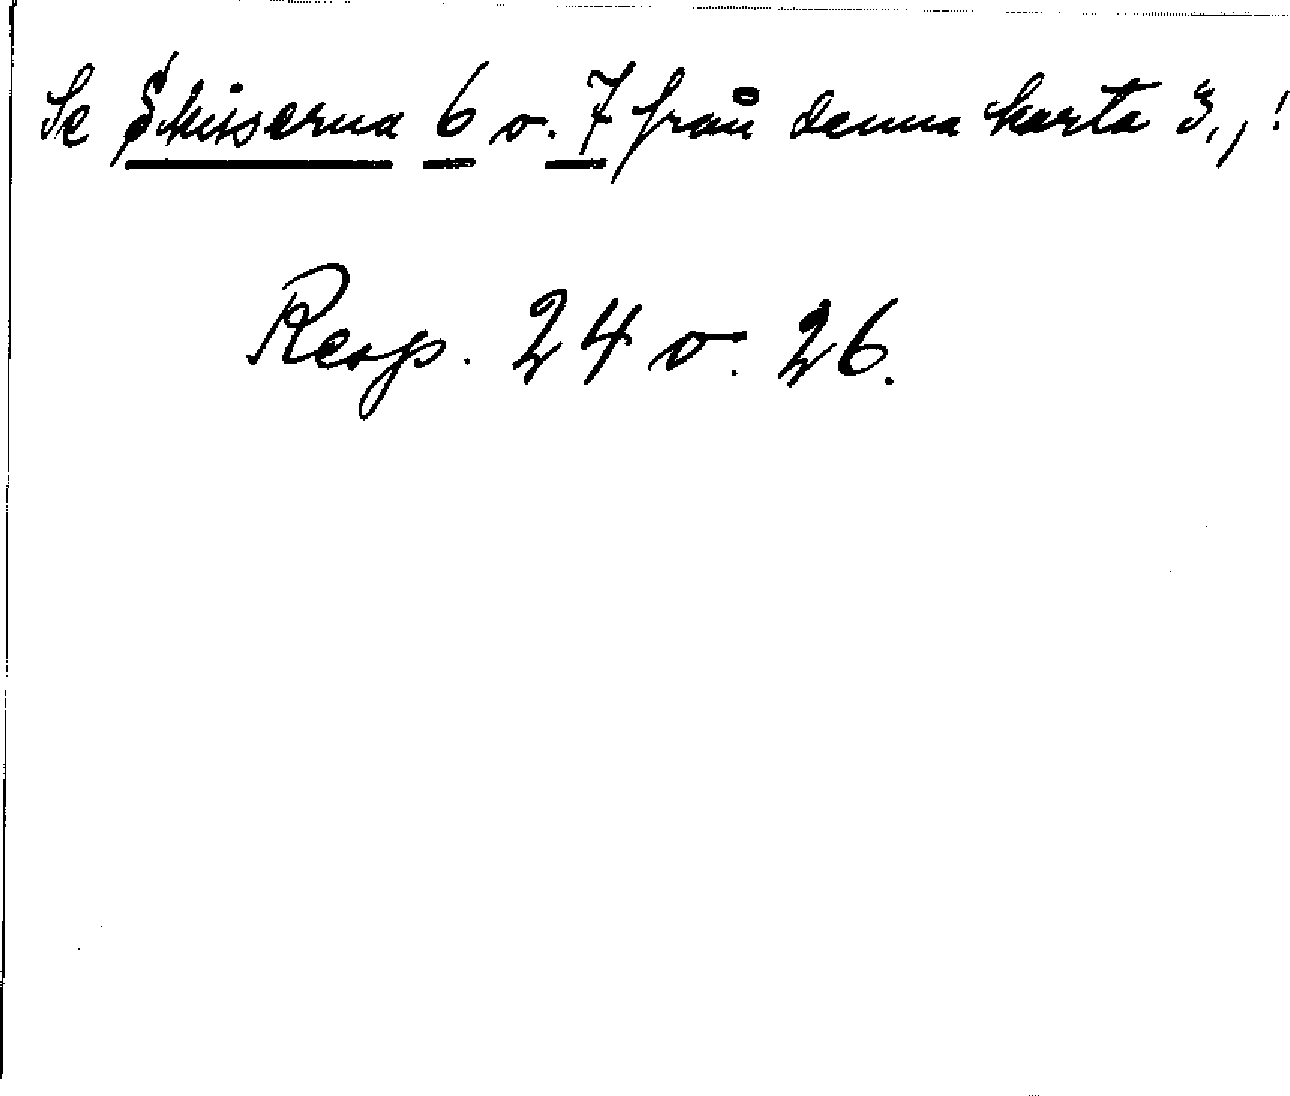 Se Skisserna 6 o. 7 från denna karta 3,,!
Resp. 24 o. 26.